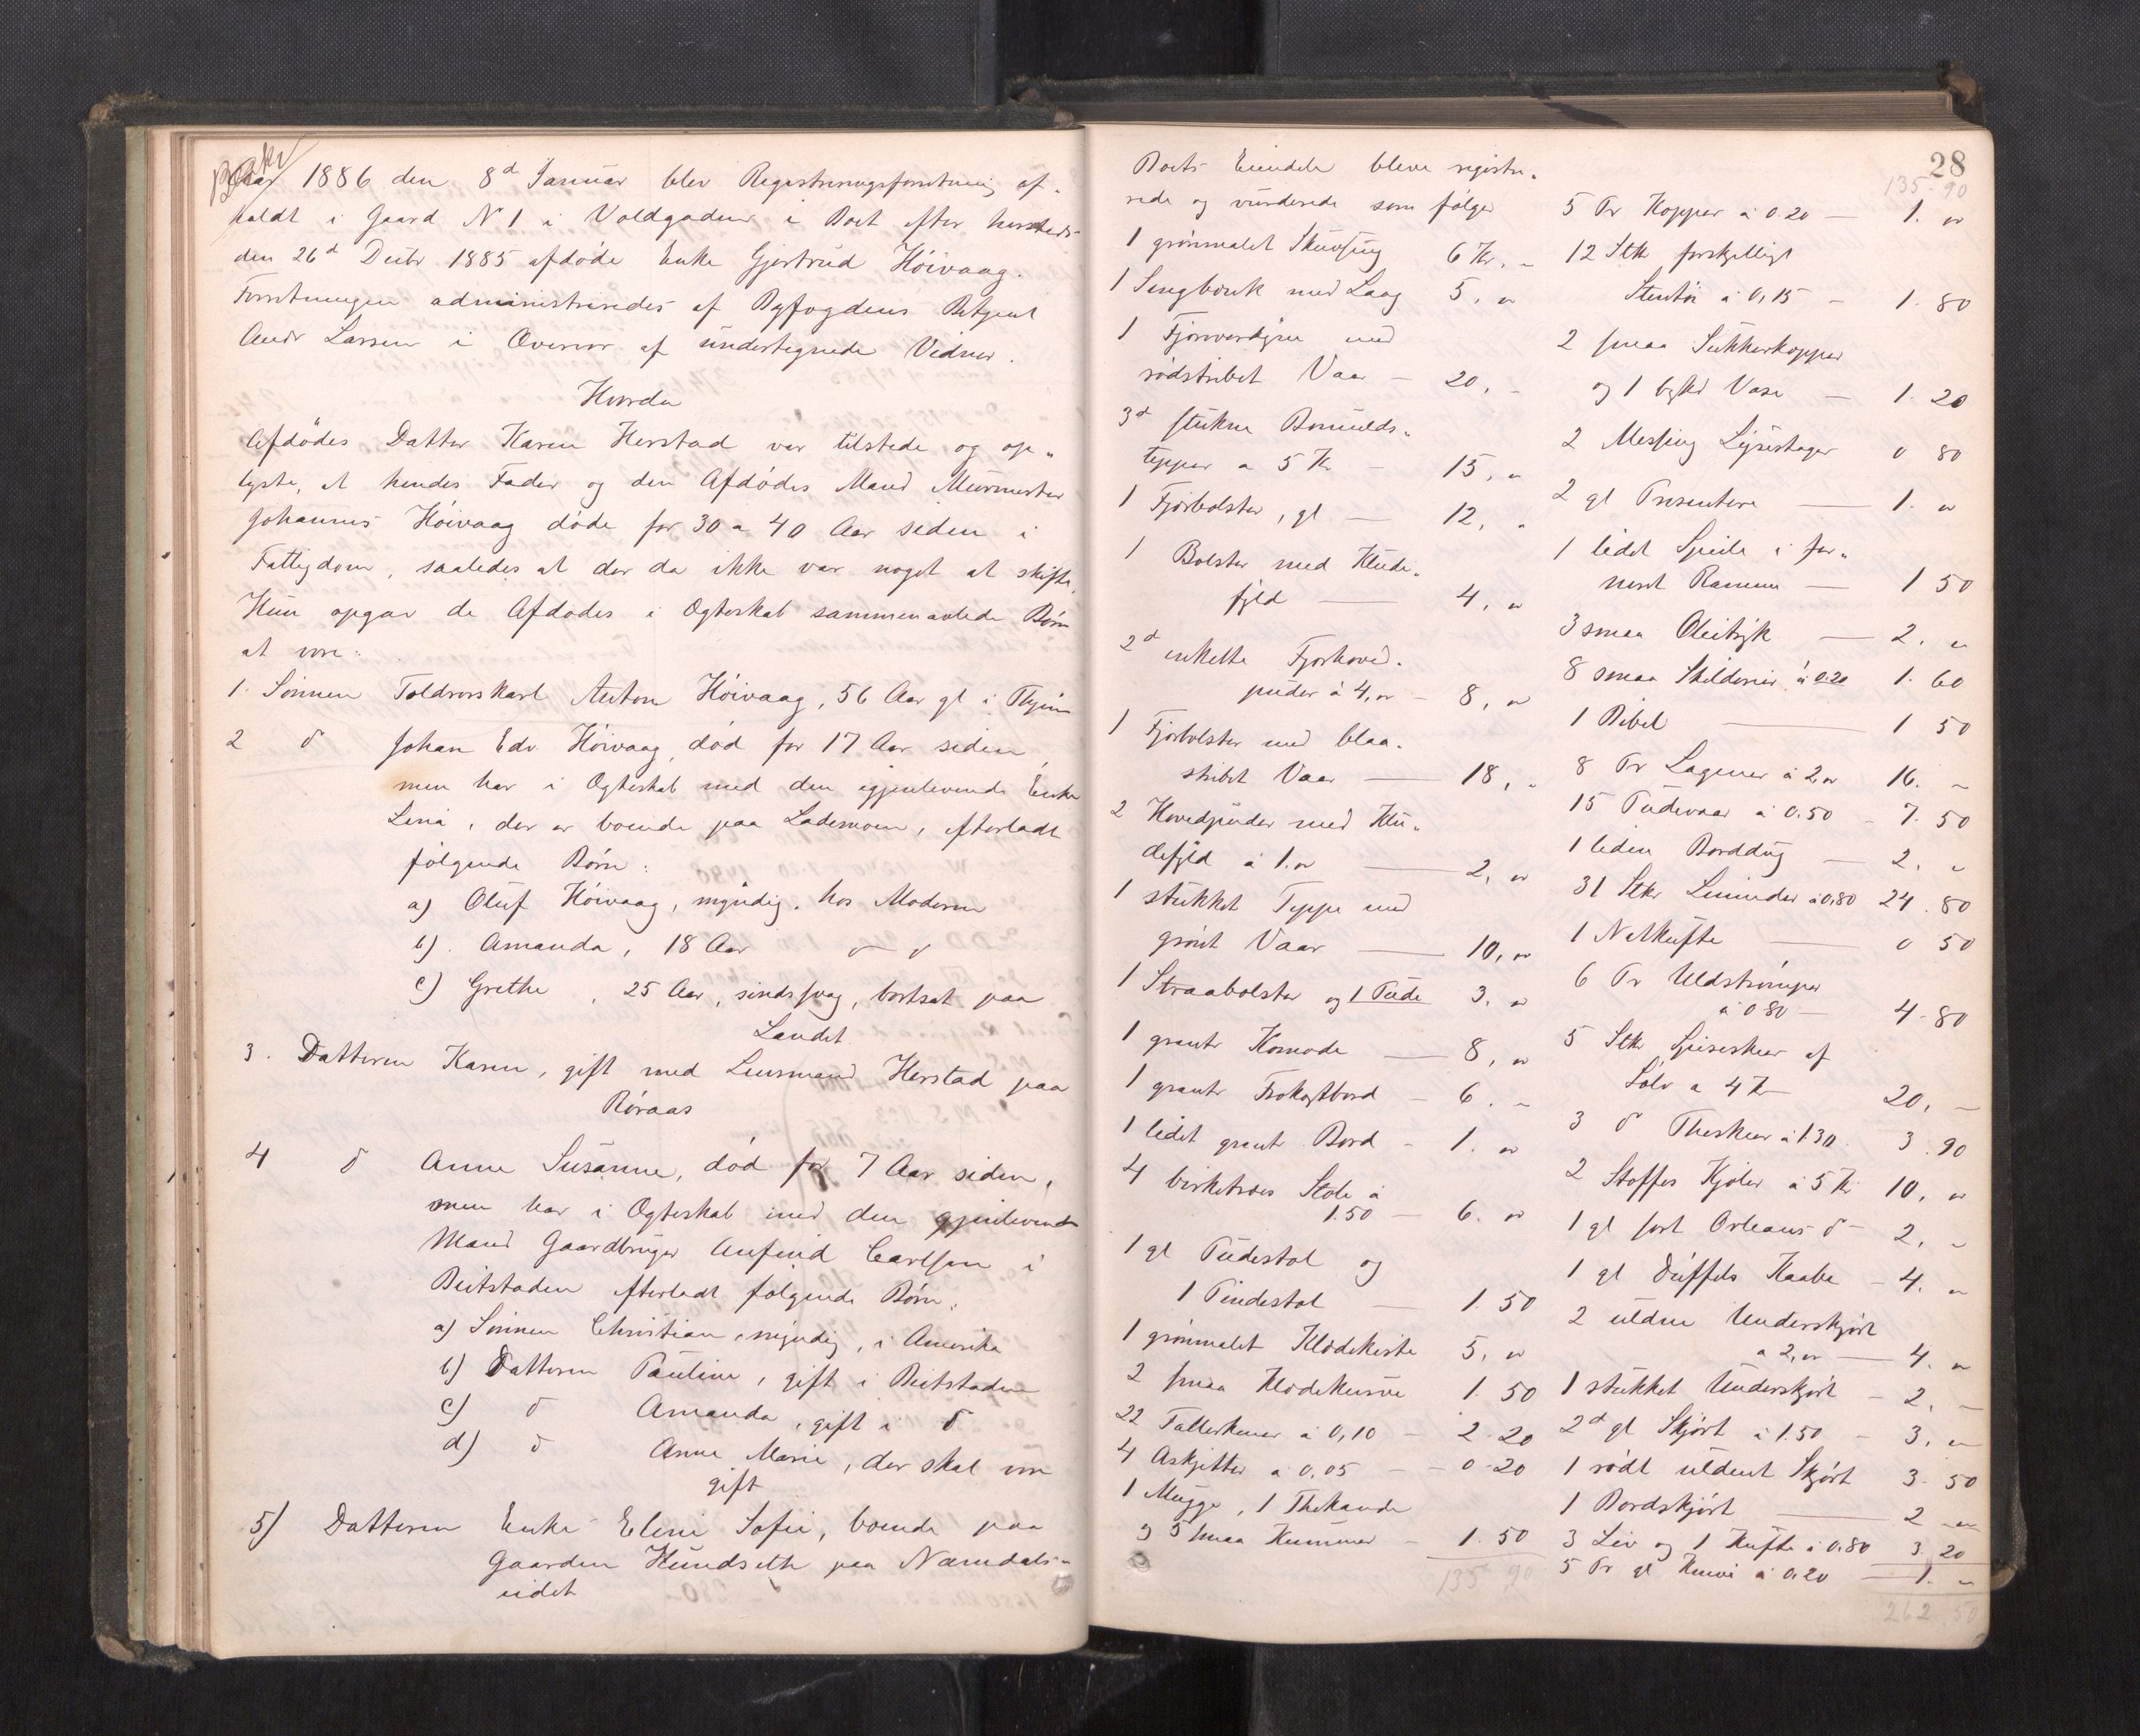 Aar 1886 den 8d Januar blev Registreringsforretning af-
holdt i Gaard N 1 i Voldgaden i Boet efter hersteds
den 26d Decbr 1885 afdøde Enke Gjertrud Höivaag.
Forretningen administreredes af Byfogdens Betjent
Andr Larsen i Overvær af undertegnede Vidner.
Hvorda
Afdödes Datter Karen Herstad var tilstede og op„
lyste, at hendes Fader og den Afdödes Mand Murmester
Johannes Höivaag döde for 30 a 40 Aar siden i
Fattigdom, saaledes at der da ikke var noget at skifte.
Hun opgav de Afdödes i Ægteskab sammenavlede Börn
at være:
1. Sönnen Toldrorskarl Anton Höivaag, 56 Aar gl i Byen
2 d Johan Edv. Höivaag, död for 17 Aar siden,
men har i Ægteskab med den igjenlevende Enke
Lina, der er boende paa Lademoen, efterladt
fölgende Börn:
a) Oluf Höivaag, myndig, hos Moderen
b). Amanda, 18 Aar d d
c) Grethe, 25 Aar, sindssvag, bortsat paa
Landet
3. Datteren Karen, gift med Lensmand Herstad paa
Röraas
4 d Anne Susanne, död for 7 Aar siden,
men har i Ægteskab med den gjenlevende
Mand Gaardbruger Anfind Carlsen i
Beitstaden efterladt fölgende Börn.
a) Sönnen Christian, myndig, i Amerika
b) Datteren Pauline, gift i Beitstaden
c) d Amanda, gift i d
d) d Anne Marie, der skal være
gift
5) Datteren Enke Eleni Sofie, boende paa
Gaarden Hundseth paa Namdals-
eidet
28
Boets Eiendele bleve registre„
rede og vurderede som fölger
1 grönmalet Skuvseng 6 Kr. „
1 Sengbænk med Laag 5, „
1 Fjærverdyne med
rödstribet Vaar – 20, „
3d stukne Bomulds„
tepper a 5 Kr – 15, „
1 Fjærbolster, gl – 12, „
1 Bolster med Klude„
fyld – 4, „
2d enkelte Fjærhoved-
puder à 4, „ – 8, „
1 Fjærbolster med blaa-
stribet Vaar – 18, „
2 Hovedpuder med Klu„
defyld à 1. „ – 2, „
1 stukket Teppe med
grönt Vaar – 10, „
1 Straabolster og 1 Pude 3. „
1 grantr Komode – 8, „
1 grantr Frokostbord – 6. „
1 lidet grantr Bord – 1. „
4 birketræes Stole à
1.50 – 6. „
1 gl Pudestol og
1 Pindestol – 1. 50
1 grönmalet Klædekiste 5, „
2 smaa Klædekurve 1. 50
22 Tallerkener à 0,10 – 2. 20
4 Askjetter à 0,05 – 0. 20
1 Mugge, 1 Thekande
og 5 smaa Kummer – 1. 50
135 90
135. 90
5 Pr Kopper à 0.20 – 1. „
12 Stk forskjelligt
Stentöi à 0,15 – 1. 80
2 smaa Sukkerkopper
og 1 Vase – 1. 20
2 Messing Lysestager 0 80
2 gl Presentere – 1. „
1 lidet Speile i for„
neret Ramme – 1 50
3 smaa Olietryk – 2. „
8 smaa Skilderier à 0.20 1. 60
1 Bibel – 1 50
8 Pr Lagener à 2, „ 16. „
15 Pudevaar à 0.50 – 7. 50
1 liden Borddug – 2. „
31 Stkr Linneder à 0,80 24. 80
1 Natkufte – 0 50
6 Pr Uldströmper
à 0.80 – 4. 80
5 Stkr Spiseskeer af
Sölv a 4 Kr 20, –
3 d Theskeer à 1.30. 3. 90
2 Stoffes Kjoler à 5 Kr 10, „
1 gl sort Orleans d – 2, „
1 gl Duffels Kaabe – 4. „
2 uldne Underskjört
a 2, „ – 4. „
1 stukket Underskjört – 2, –
2d gl Skjört à 1.50 – 3, „
1 rödt uldent Skjört 3. 50
1 Bordskjört – 2 „
3 Liv og 1 Kufte à 0.80 3. 20
5 Pr gl à 0.20 – 1. „
262. 50